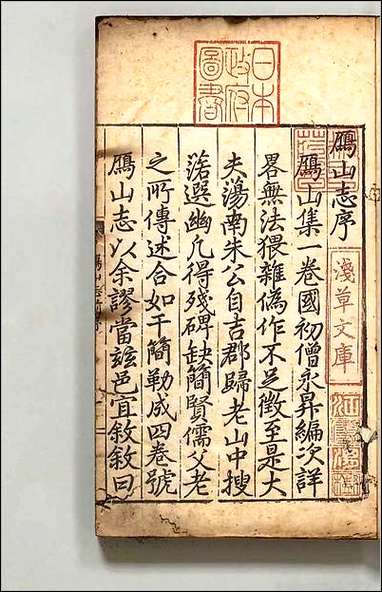 鴈山志序
鴈山集一卷國初僧永昇編次詳
畧無法猥雜偽作不足徵至是大
夫蕩南朱公自吉郡歸老山中搜
澹選幽凡得殘碑缺簡賢儒父老
之所傳述合如干簡勒成四卷號
鴈山志以余謬當兹邑宜敘敘曰
日本
政府
圖書
淺草文庫